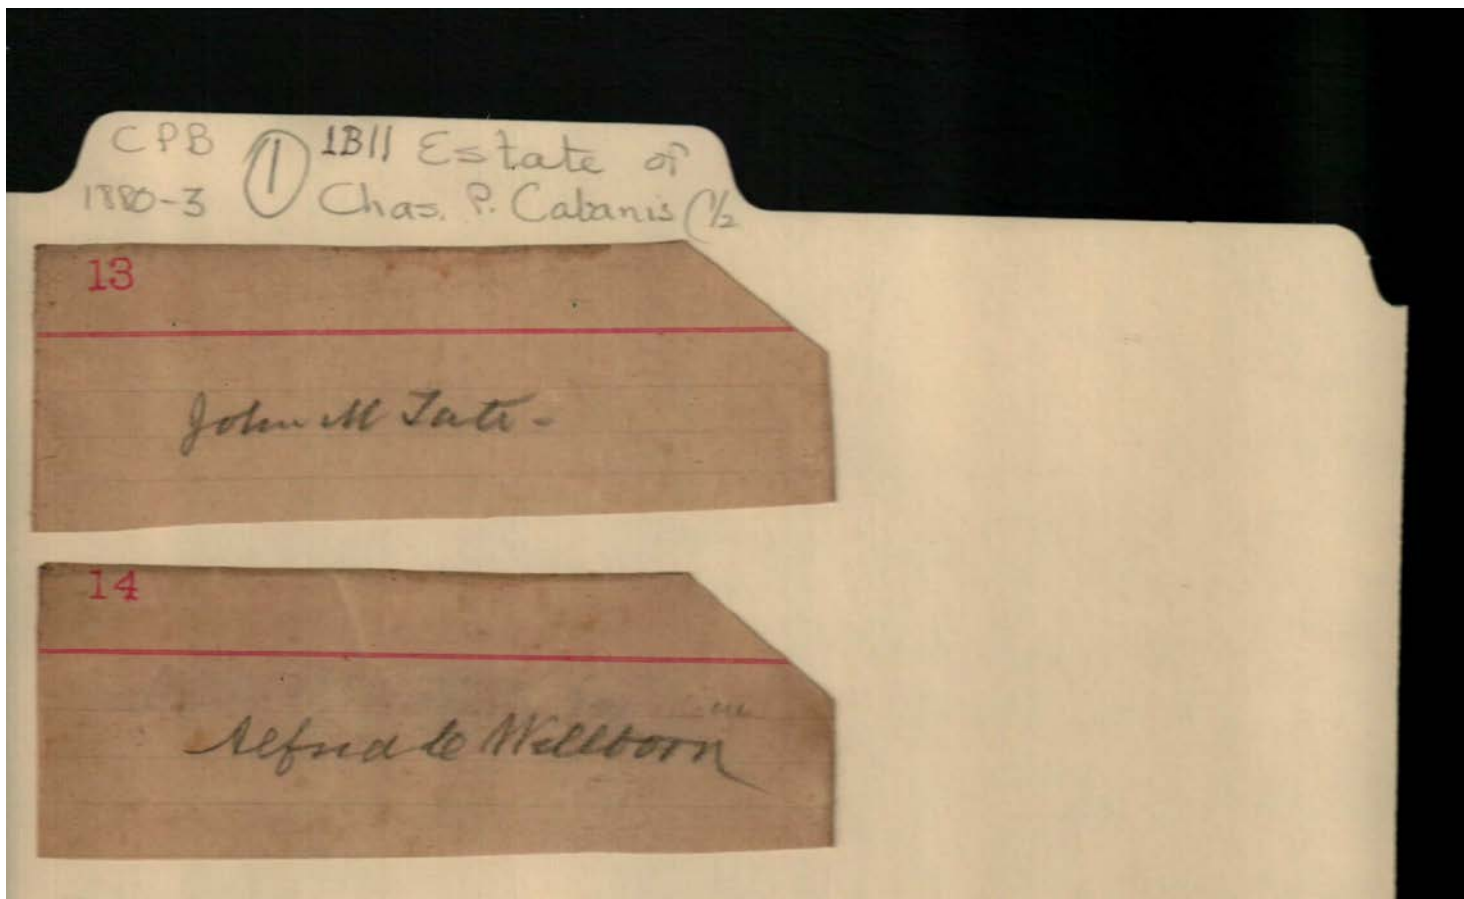 CPB ① 1B11 Estate of
1880-3 Chas. P. Cabanis (1/2
13
John M Tate -
14
Alfred C Wellborn